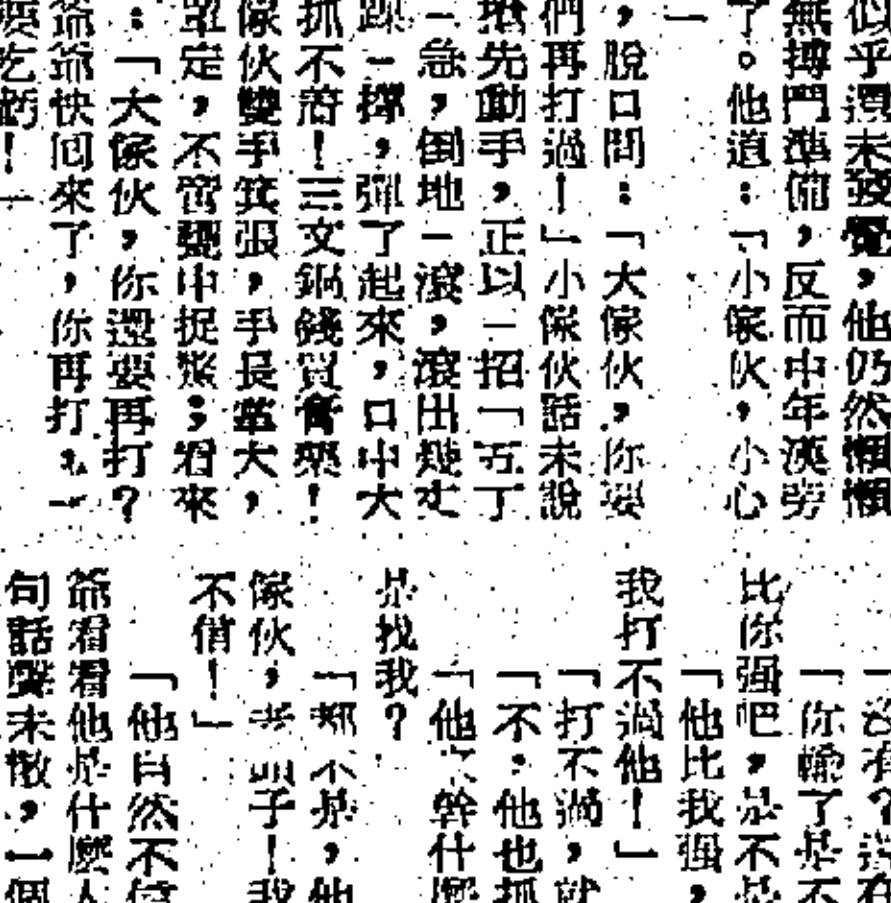 似乎還未發覺,他仍然懶懶
無搏鬥準備,反而中年漢旁
了。他道:「小傢伙,小心
,脫口問:「大傢伙,你要
們再打過!」小傢伙話未說
搶先動手,正以一招「五丁
一急,倒地一滾,滾出幾丈
踝一擇,彈了起來,口中大
抓不着!三文銅錢買膏藥!
傢伙雙手箕張,手長臺大,
定,不管甕中捉鱉;看來
:「大傢伙,你還要再打?
爺爺快回來了,你再打,
要吃虧!
沒有?
「你輸了是不
比你强吧,是不是
「他比我强,
我打不過他!」
「打不過,就
「不,他也抓
「他 幹什麼
是找我?
「都不是,他
傢伙,老頭子!我
不借!」
「他自然不信
爺看看他是什麼人
句話聲未散,一個